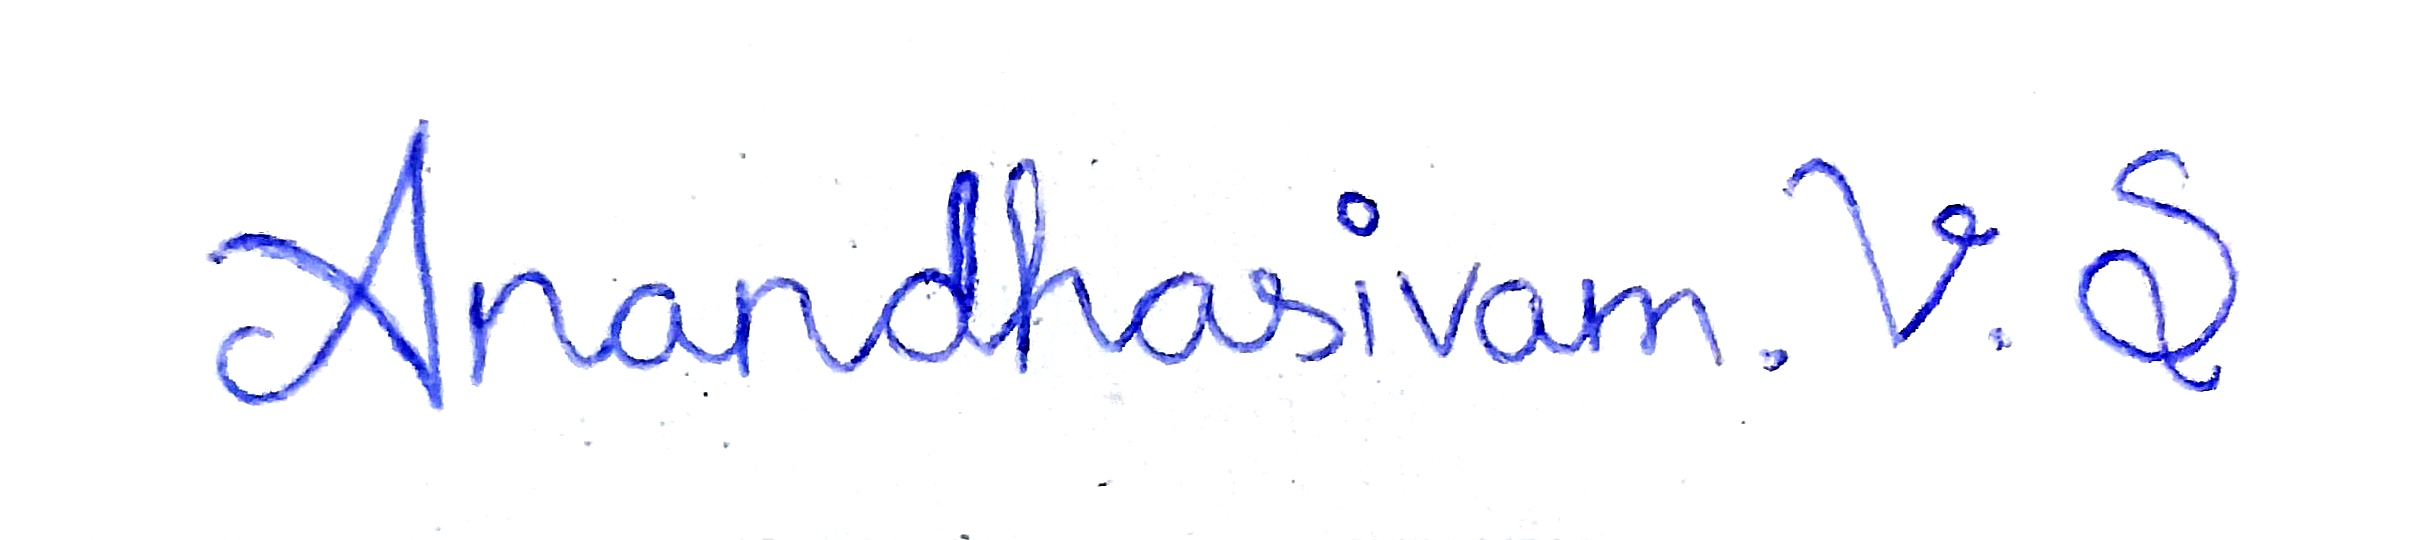 Anandhasivam. V. S